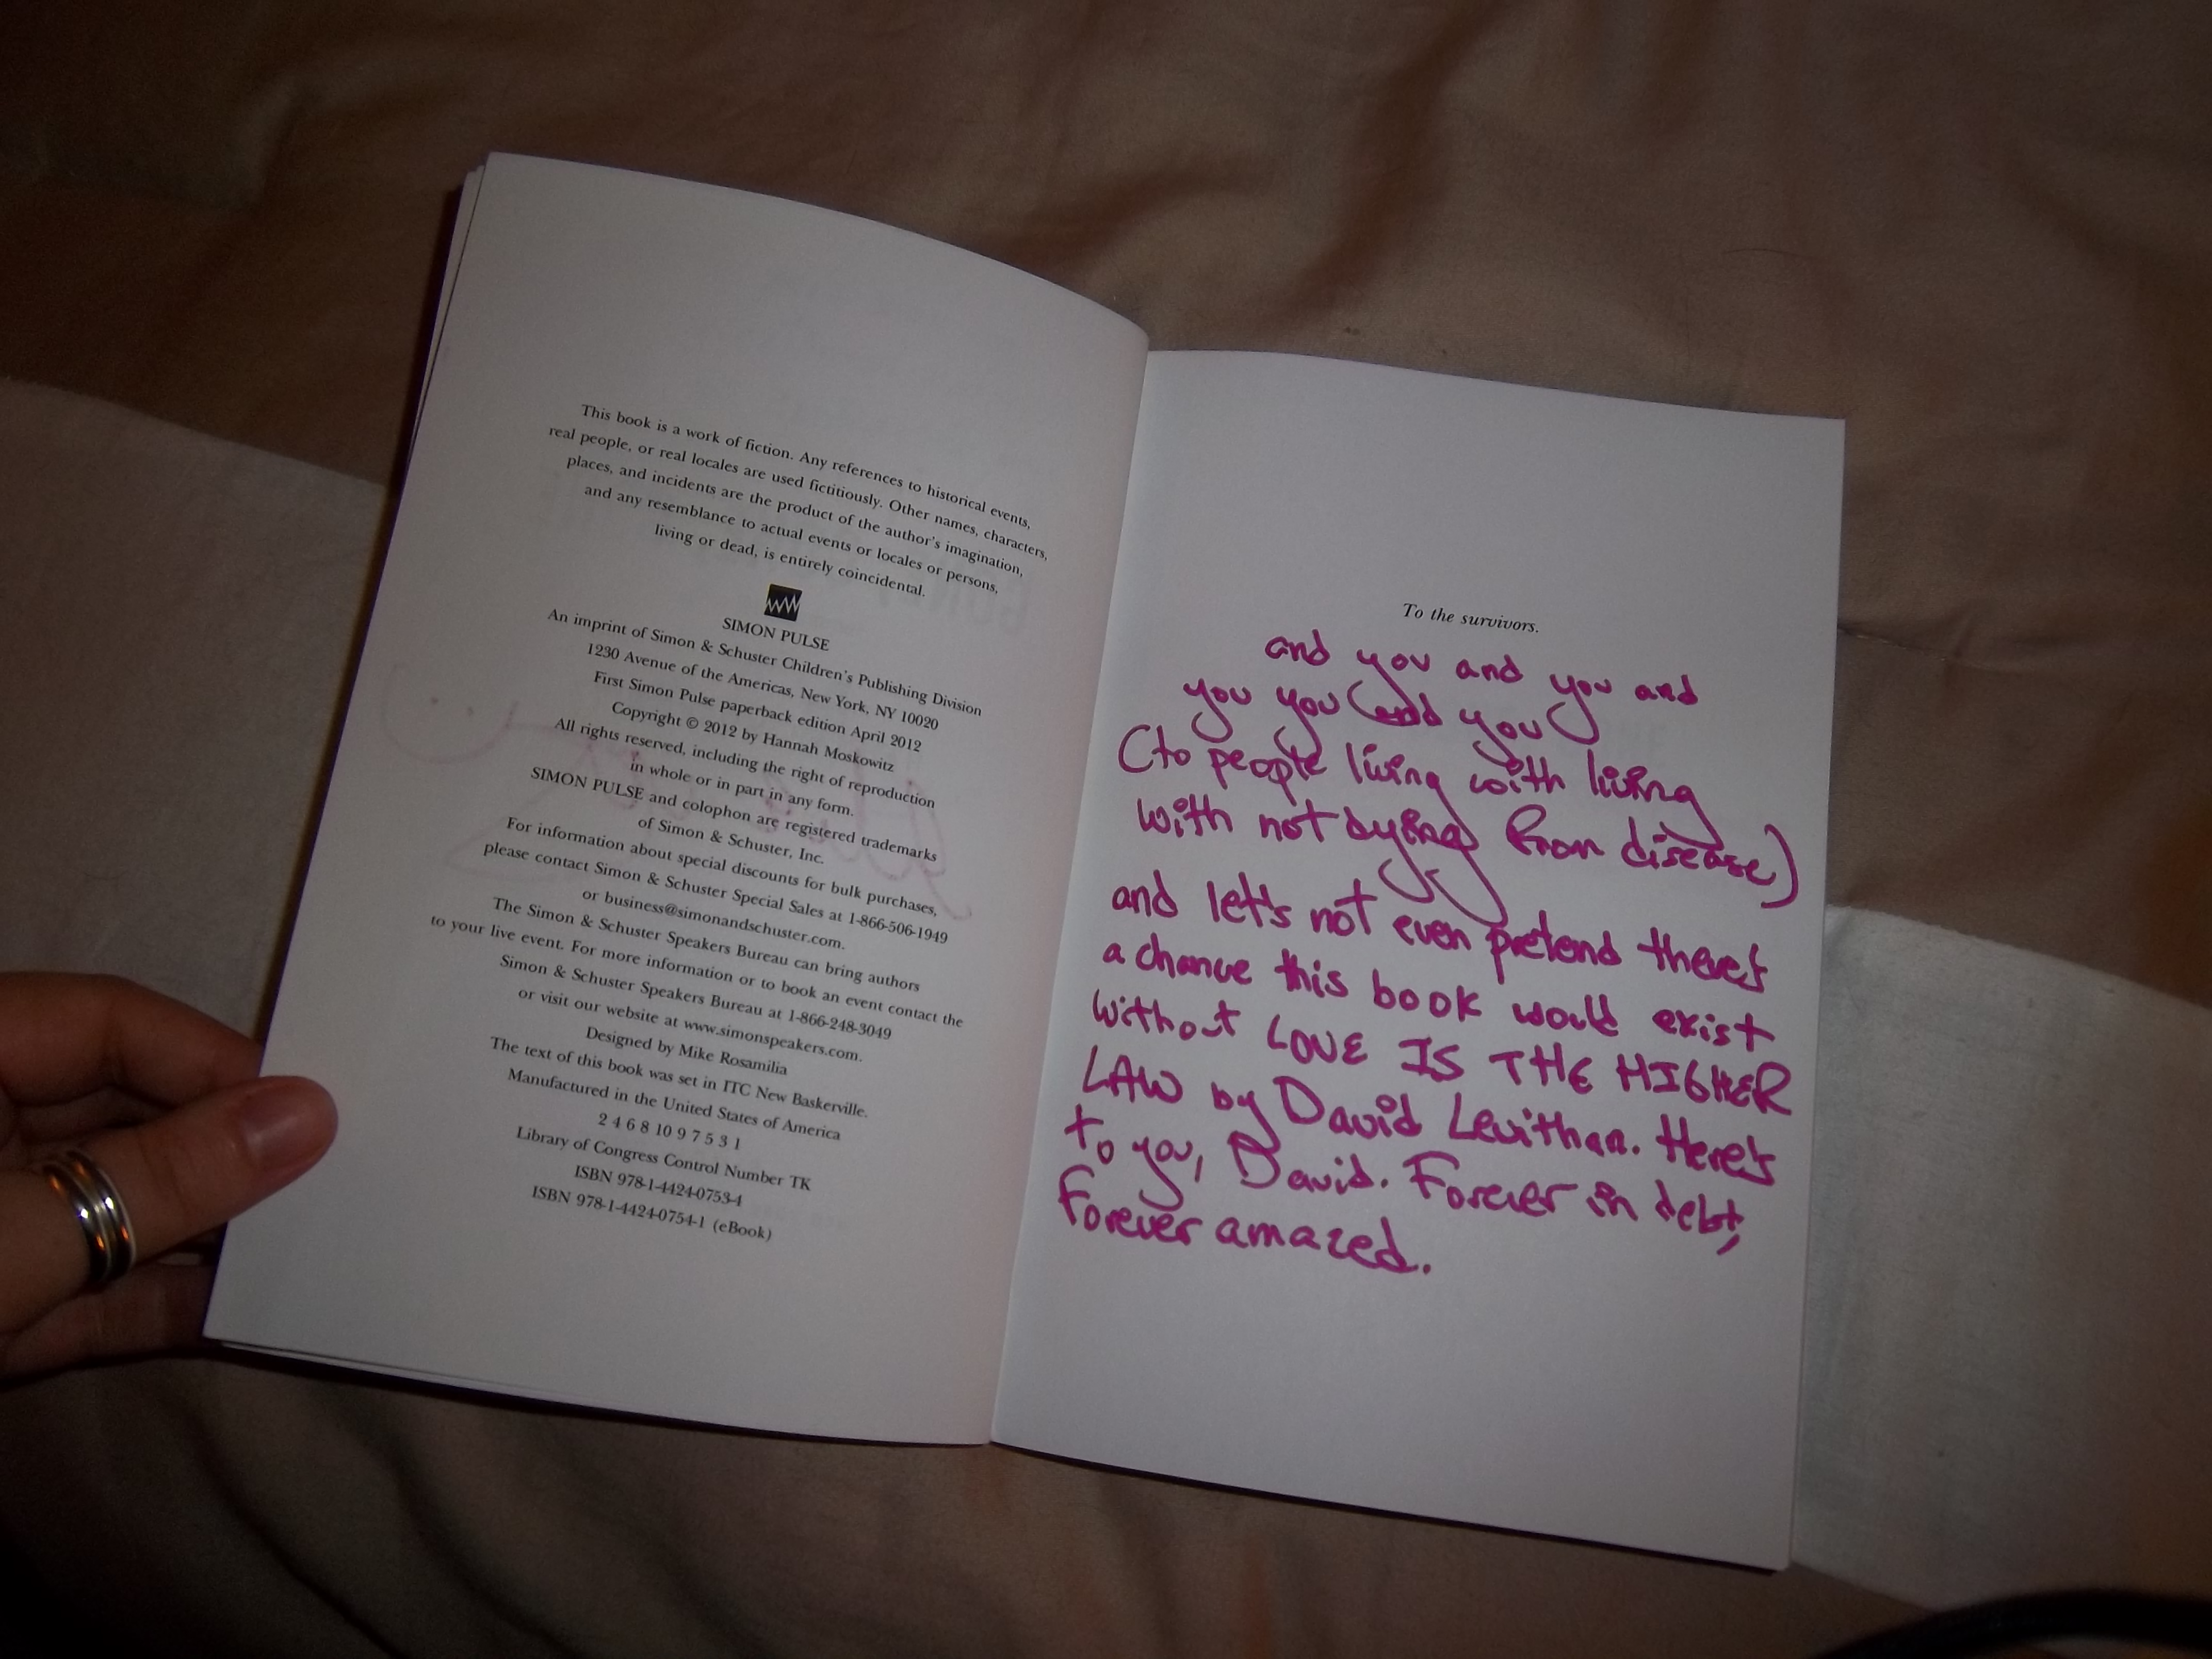 This book is a work of fiction. Any references to historical events,
real people, or real locales are used fictitiously. Other names, characters,
places, and incidents are the product of the author's imagination,
and any resemblance to actual events or locales or persons,
living or dead, is entirely coincidental.
SIMON PULSE
An imprint of Simon & Schuster Children's Publishing Division
1230 Avenue of the Americas, New York, NY 10020
First Simon Pulse paperback edition April 2012
Copyright © 2012 by Hannah Moskowitz
All rights reserved, including the right of reproduction
in whole or in part in any form.
SIMON PULSE and colophon are registered trademarks
of Simon & Schuster, Inc.
For information about special discounts for bulk purchases,
please contact Simon & Schuster Special Sales at 1-866-506-1949
or business@simonandschuster.com.
The Simon & Schuster Speakers Bureau can bring authors
to your live event. For more information or to book an event contact the
Simon & Schuster Speakers Bureau at 1-866-248-3049
or visit our website at www.simonspeakers.com.
Designed by Mike Rosamilia
The text of this book was set in ITC New Baskerville.
Manufactured in the United States of America
2 4 6 8 10 9 7 5 3 1
Library of Congress Control Number TK
ISBN 978-1-4424-0753-4
ISBN 978-1-4424-0754-1 (eBook)
To the survivors.
and you and you and
you you (and you
(to people living with living
with not dying from disease)
and let's not even pretend there's
a chance this book would exist
without LOVE IS THE HIGHER
LAW by David Levithan. Here's
to you, David. Forever in debt,
Forever amazed.